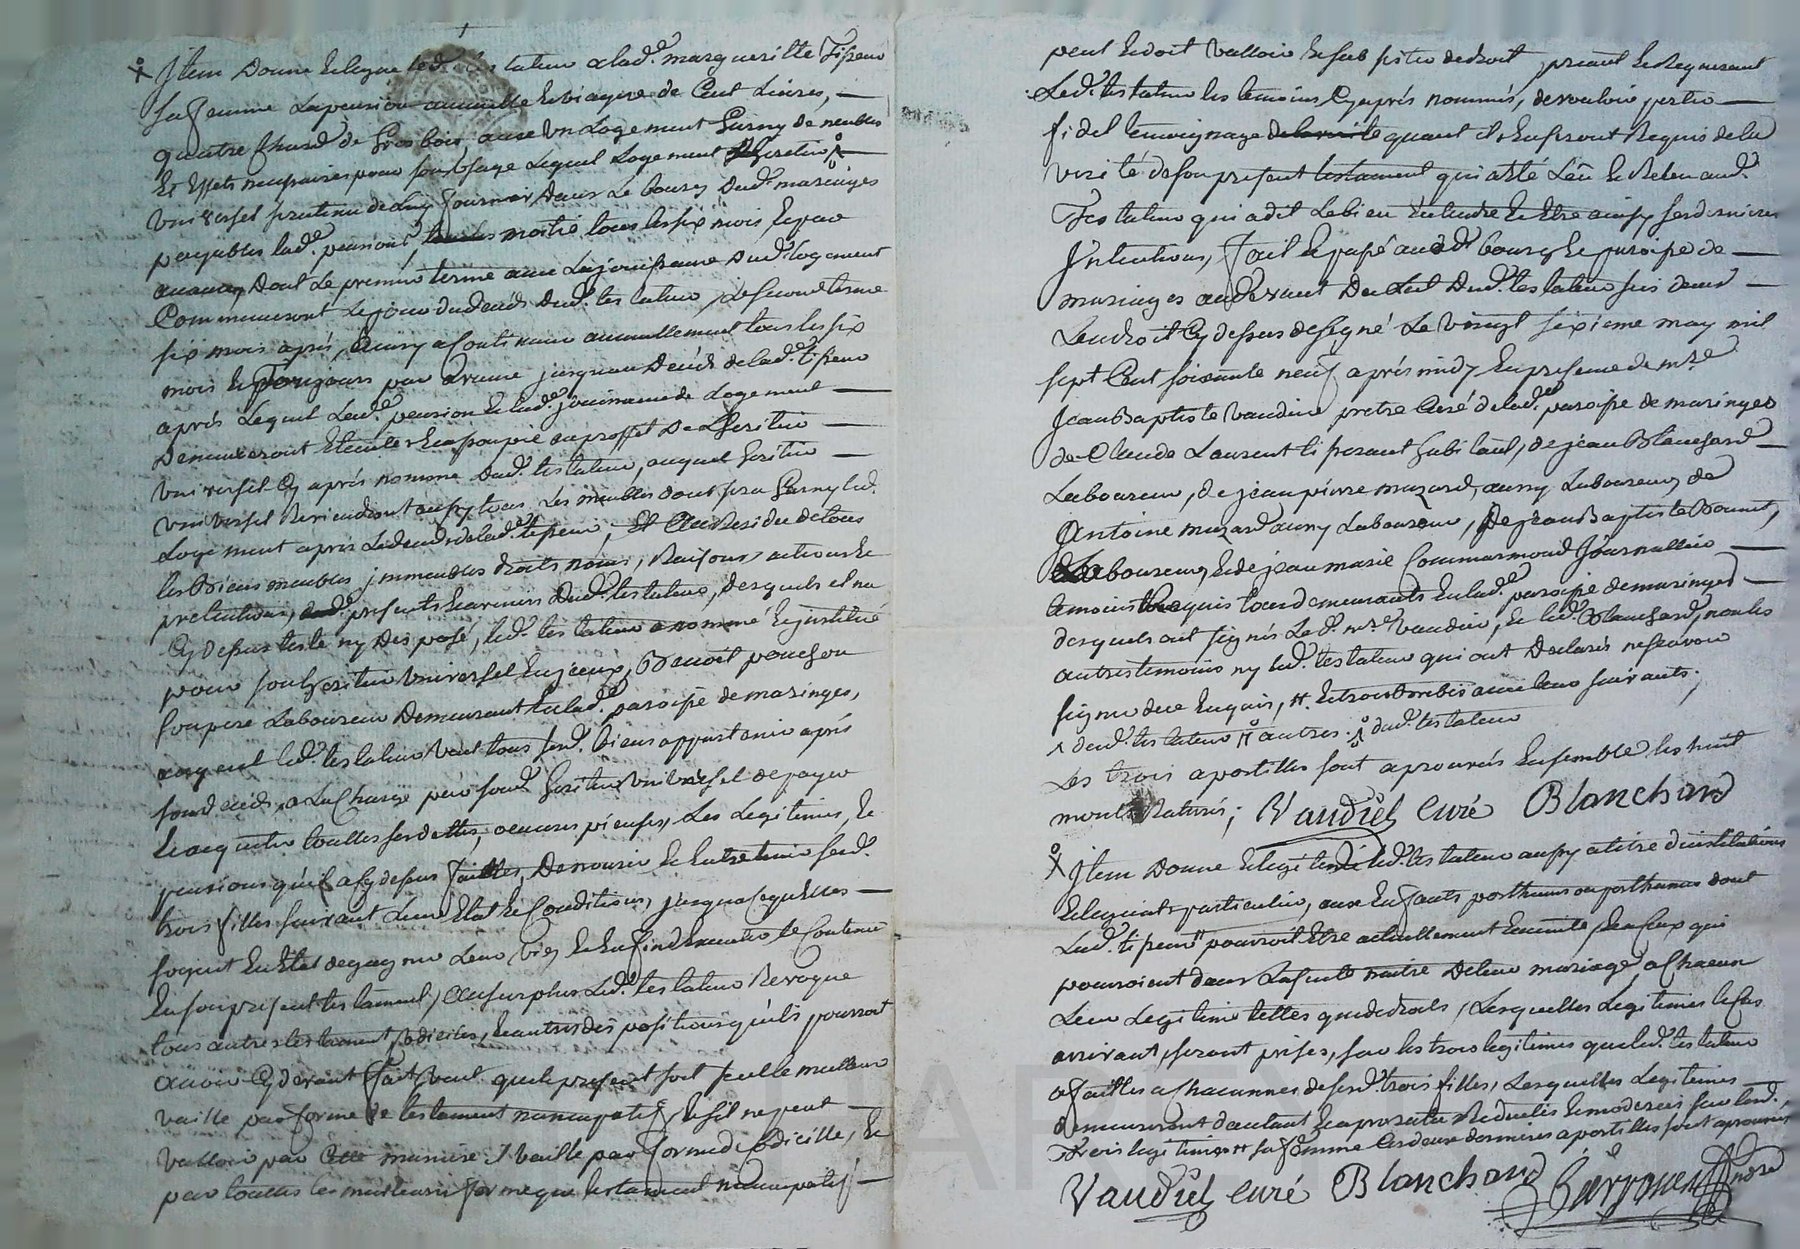 Item donne et legue led. testateur a lad.e margueritte Tiss eur
sa femme la pension annuelle et viagere de Cent Livres, —
quatre chards de Gros bois, avec un Logement Garny de meubles
et effets necessaires pour son usage Lequel Logement heritier —
universel sera tenu de luy fournir dans Le bourg dud. maringes
payables lad.e pension, moitié tous les six mois et par
avance, dont Le premier terme avec la jouissance dud. logement
Commenceront Le jour du deceds dud. testateur, Le second terme
six mois aprés, Ainsy a Continuer annuellement tous les six
mois et Toujours par avance jusqu'au Deceds de lad.e tisseur
aprés Lequel Lad.e pension et lad.e jouissance de Logement —
Demeureront Eteintes et assoupie au proffit de L'heritier —
universel Cy aprés nommé Dud. testateur, auquel heritier —
universel Reviendront aussy tous Les meubles dont sera Garny led.
Logement aprés Le deceds de lad.e tisseur, Et Au Residu de tous
les Biens meubles jmmeubles droits noms, Raisons, actions et
pretentions, presents et avenirs Dud. testateur, desquels il n'a
Cy dessus testé ny Disposé, led. testateur a nommé et jnstitué
pour son heritier universel Benoit ponchon
son pere Laboureur Demeurant en lad.e paroisse de maringes,
auquel led. testateur veut tous sesd. biens appartenir aprés
son deceds, a La Charge par sond. heritier universel de payer
et acquitter touttes ses dettes, oeuvres pieuses, Les Legitimes, et
pensions qu'il a Cy dessus faittes, De nourir et Entretenir sesd.
trois filles suivant Leur Etat et Condition, jusqu'a Ce qu'elles —
soyent En Etat de gagner Leur vie, et En fin d'executer le Contenu
En son present testament, Au surplus Led. testateur Revoque
tous autres testament Codiciles, et autres dispositions qu'il pourroit
avoir Cy devant fait, veut que le present soit seul le meilleur
vaille par forme de testament nuncupatif, et s'il ne peut —
valloir par Cette maniere il vaille par forme de Codicille, et
par touttes les meilleures formes que testament nuncupatif —
peut et doit valloir et subsister de droit, priant et Requerant
Led. testateur les temoins Cy aprés nommés, de vouloir porter —
fidel temoignage quant ils En seront Requis de la
verité de son present testament qui a été Leu et Releu aud.
Testateur qui a dit Le bien entendre et Etre ainsy ses dernieres
Intentions, Fait et passé aud. bourg et paroisse de —
maringes au devant Du Lict Dud. testateur sis dans —
L'endroit Cy dessus designé Le vingt sixieme may mil
sept Cent soixante neuf aprés midy En presence de m.re
Jean Baptiste Vaudier pretre Curé de lad.e paroisse de maringes
de Claude Laurent tisserant habitant, de jean Blanchard —
Laboureur, de jean pierre mazard, aussy Laboureur, de
Antoine mazard aussy Laboureur, De jean Baptiste Bonnet,
Laboureur, et de jean marie Commarmond Journallier —
temoins Requis tous demeurants En lad.e paroisse de maringes —
desquels ont signés Led. m.re Vaudier, et led. Blanchard, non les
autres temoins ny led. testateur qui ont Declarés ne scavoir
signer de ce Enquis, #. et trois brebis avec leur suivants.
dud. testateur # autres. dud. testateur
Les trois apostilles sont aprouvés Ensemble les huit
mots Raturés; Vaudier Curé Blanchard
Item Donne et legue led. testateur aussy a titre d'institution
et legat particulier, aux Enfants posthumes ou posthumes dont
Lad. tisseur pourroit Etre actuellement Enceinte et a Ceux qui
pourroient dans La suitte naitre De leur mariage a Chacun
Leur Legitime telles que de droits, Lesquelles Legitimes le Cas
arrivant, seront prises, sur les trois legitimes que led. testateur
a faittes a Chacunnes de sesd. trois filles, Lesquelles Legitimes —
demeureront d'autant et a prorata Reduites et moderées sur lesd.
Trois legitimes # sa femme Ces deux dernieres apostilles sont aprouvées
Vaudier Curé Blanchard